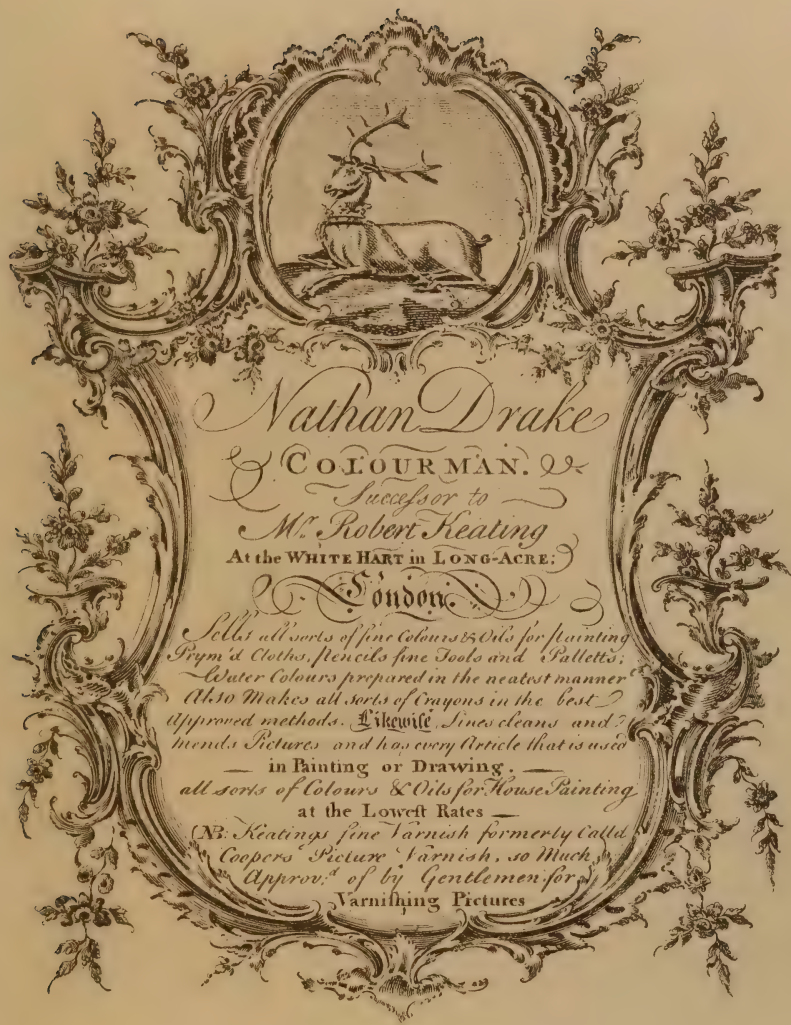 Nathan Drake
COLOURMAN.
Succeſsor to
Mr. Robert Keating
At the WHITE HART in LONG-ACRE;
London.
Sells all sorts of fine Colours & Oils for painting
Prym'd Cloths, pencils fine Tools and Palletts;
Water Colours prepared in the neatest manner
Also Makes all sorts of Crayons in the best
Approved methods. Likewiſe, Lines cleans and
mends Pictures and has every Article that is used
in Painting or Drawing.
all sorts of Colours & Oils for House Painting
at the Loweſt Rates
NB: Keatings fine Varnish formerly Calld
Coopers Picture Varnish, so Much
Approv.d of by Gentlemen for
Varniſhing Pictures